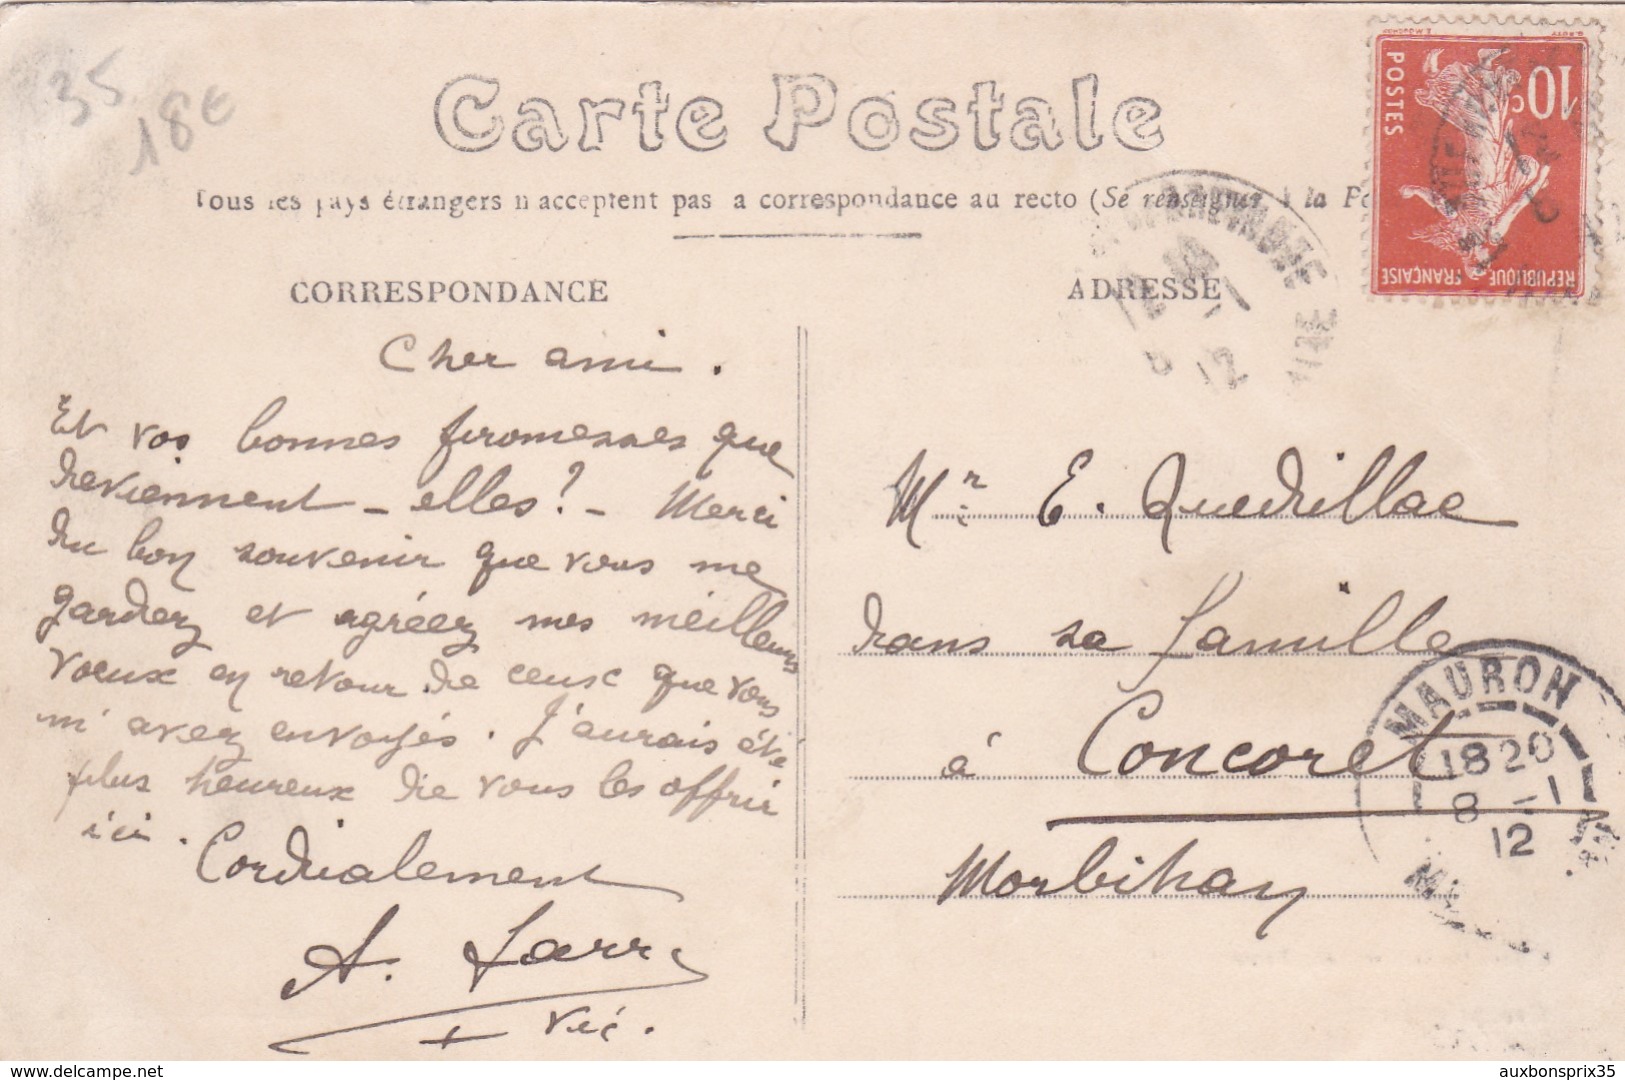 35
18€
Carte Postale
Tous les pays étrangers n'acceptent pas la correspondance au recto (Se renseigner à la
CORRESPONDANCE
ADRESSE
10c
POSTES
REPUBLIQUE FRANÇAISE
Cher ami.
Et vos bonnes promesses que
deviennent-elles? - Merci
du bon souvenir que vous me
gardez et agréez mes meilleurs
voeux en retour de ceux que vous
m'avez envoyés. J'aurais été
plus heureux de vous les offrir
ici. Cordialement
A.
Mr E. Quedrillac
dans sa famille
à Concoret
Morbihan
MAURON
1820
8 -1
12
delcampe.net
auxbonsprix35